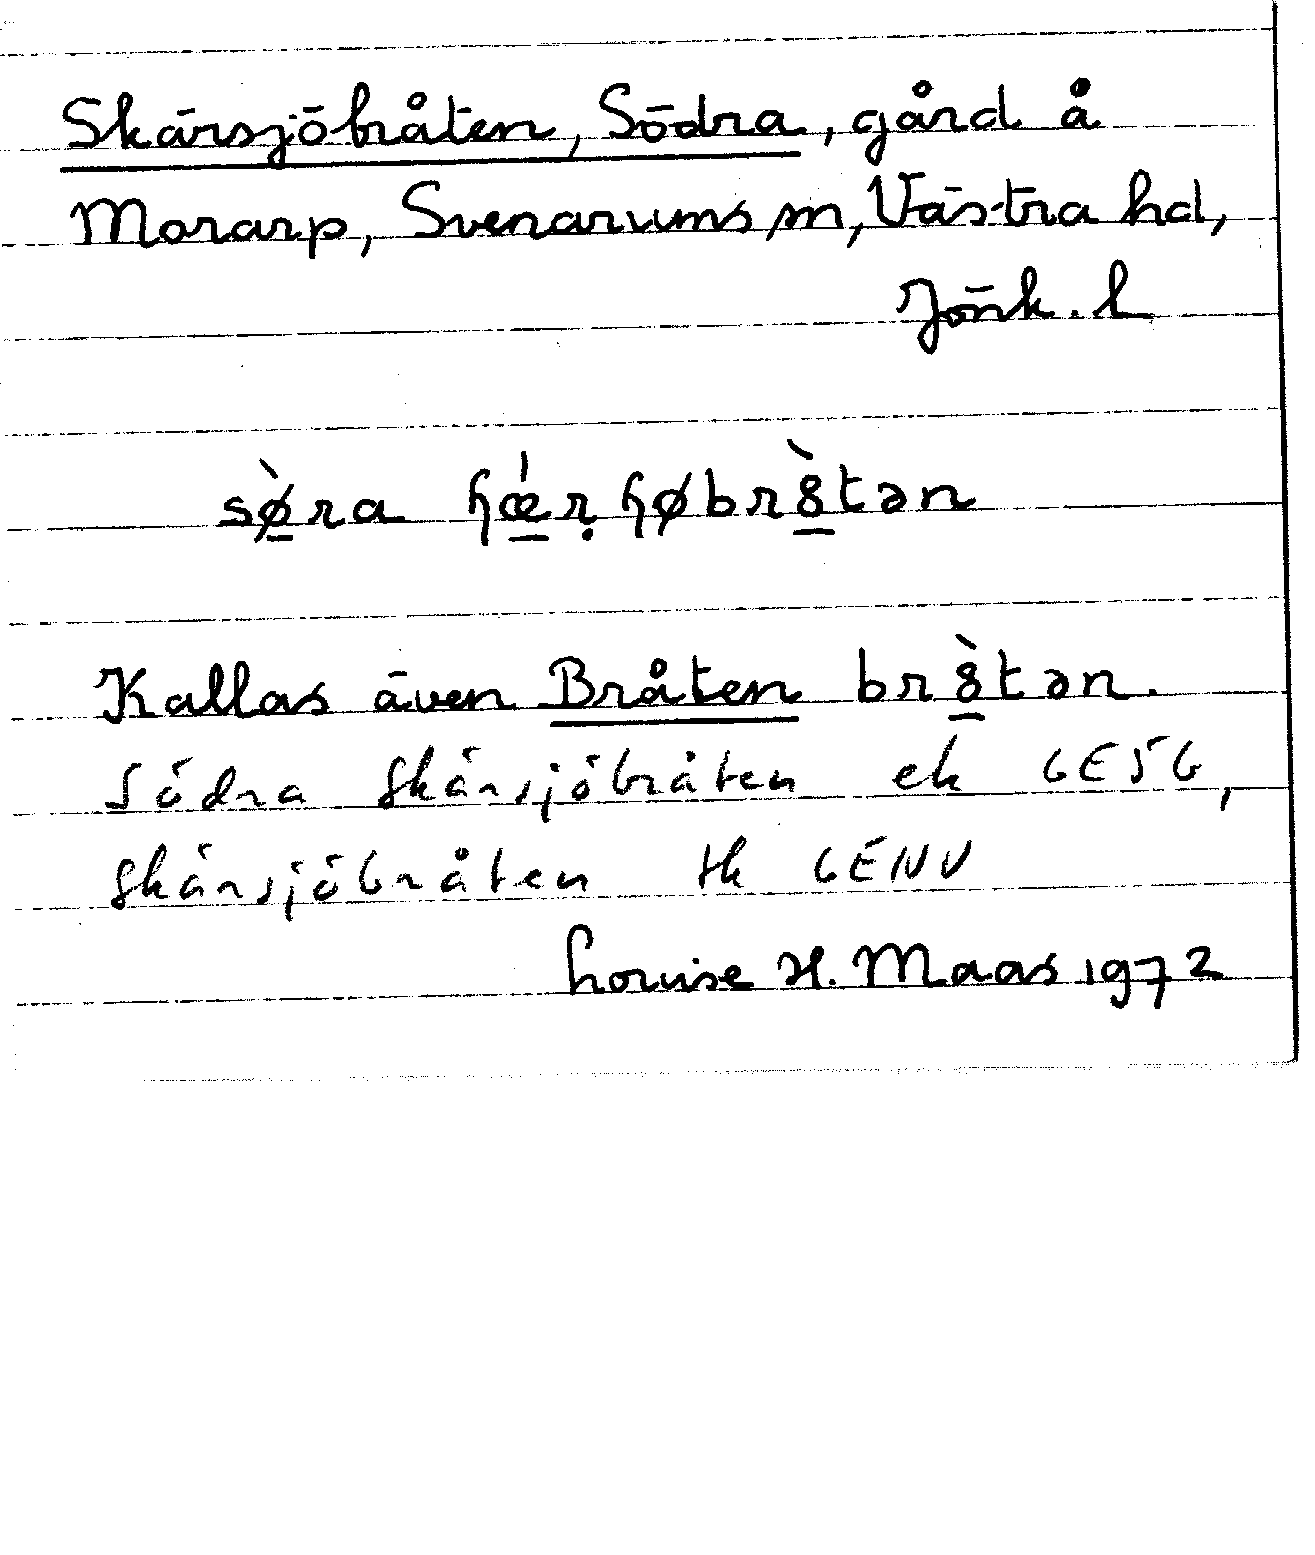 Skärsjöbråten, Södra, gård å
Morarp, Svenarums sn, Västra hd,
Jönk. l
Kallas även Bråten
Södra Skärsjöbråten ek 6E5G,
Skärsjöbråten tk 6ENV
Louise H. Maas 1972